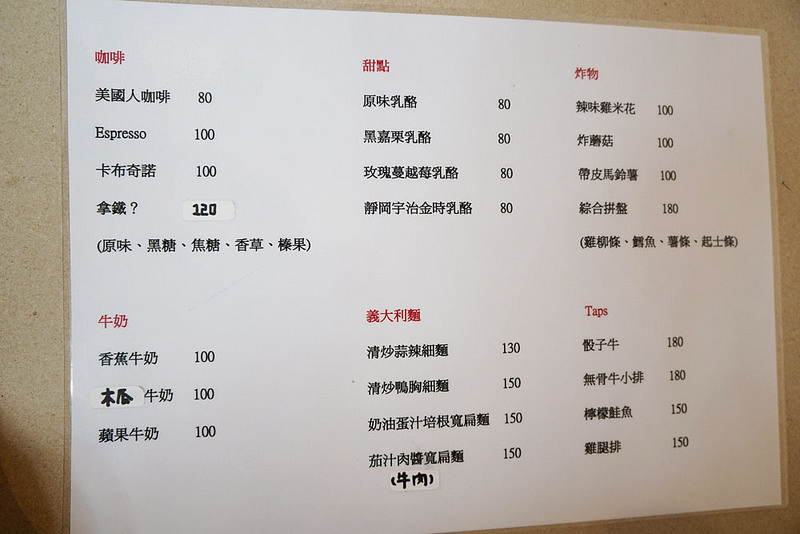 咖啡
美國人咖啡 80
Espresso 100
卡布奇諾 100
拿鐵？ 120
(原味、黑糖、焦糖、香草、榛果)
甜點
原味乳酪 80
黑嘉栗乳酪 80
玫瑰蔓越莓乳酪 80
靜岡宇治金時乳酪 80
炸物
辣味雞米花 100
炸蘑菇 100
帶皮馬鈴薯 100
綜合拼盤 180
(雞柳條、鱈魚、薯條、起士條)
牛奶
香蕉牛奶 100
木瓜牛奶 100
蘋果牛奶 100
義大利麵
清炒蒜辣細麵 130
清炒鴨胸細麵 150
奶油蛋汁培根寬扁麵 150
茄汁肉醬寬扁麵 150
(牛肉)
Taps
骰子牛 180
無骨牛小排 180
檸檬鮭魚 150
雞腿排 150